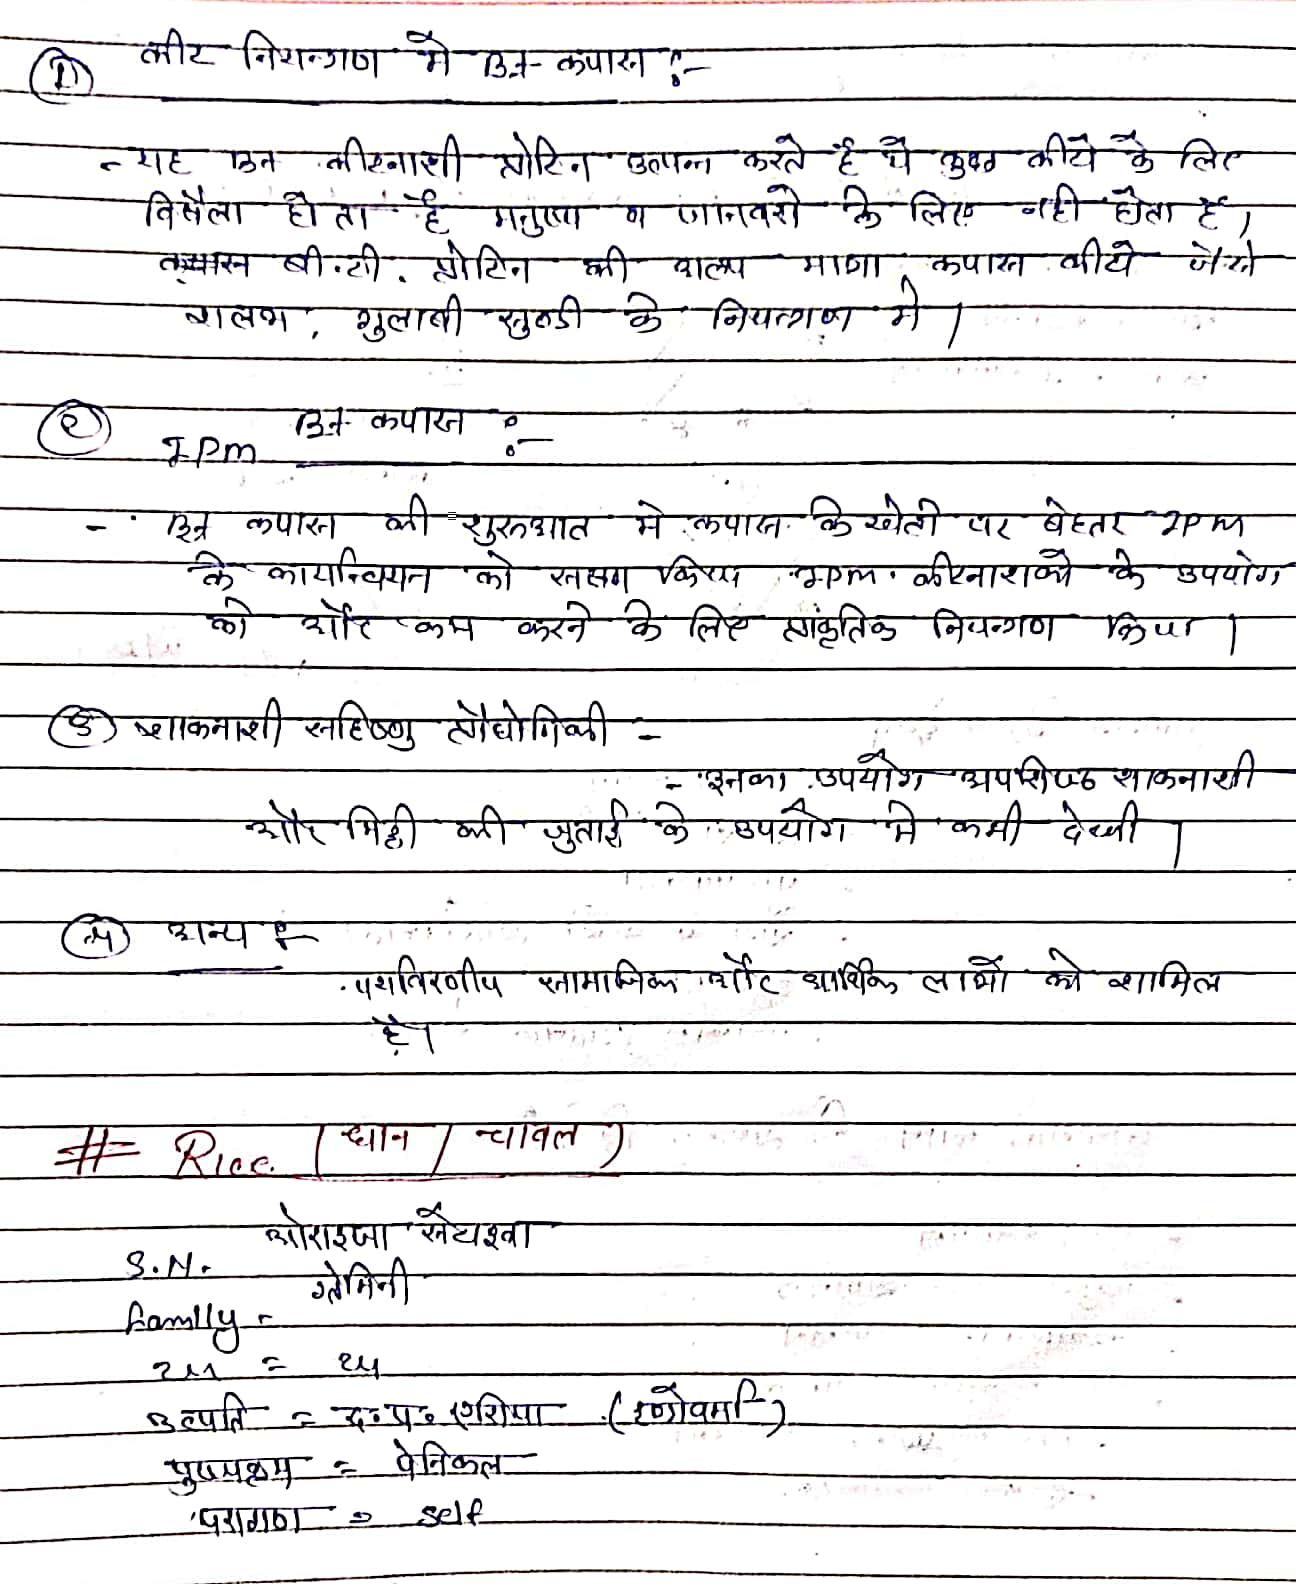 ① कीट नियन्त्रण में Bt- कपास :-
- यह उन कीटनाशी प्रोटिन उत्पन्न करते है ये कुछ कीटो के लिए
विसैला होता है मनुष्य व जानवरो के लिए नही होता है,
कपास बी.टी. प्रोटिन की अल्प मात्रा कपास कीटो जैसे
शलभ, गुलाबी सुण्डी के नियन्त्रण मे ।
② IPM Bt कपास :-
- Bt कपास की शुरुआत मे कपास कि खेती पर बेहतर IPM
के कार्यान्वियन को सक्षम किया IPM. कीटनाशको के उपयोग
को और कम करने के लिए प्राकृतिक नियन्त्रण किया ।
③ शाकनाशी सहिष्णु प्रौद्योगिकी -
- इनका उपयोग अपशिष्ठ शाकनाशी
और मिट्टी की जुताई के उपयोग मे कमी देखी ।
④ अन्य :-
पर्यावरणीय सामाजिक और आर्थिक लाभो को शामिल
है।
# Rice (धान / चावल)
S.N. ओराइजा सेटाइवा
Family - ग्रेमिनी
2n = 24
उत्पति = द० प० एशिया (इण्डोवर्मा)
पुष्पक्रम = पेनिकल
परागण = self